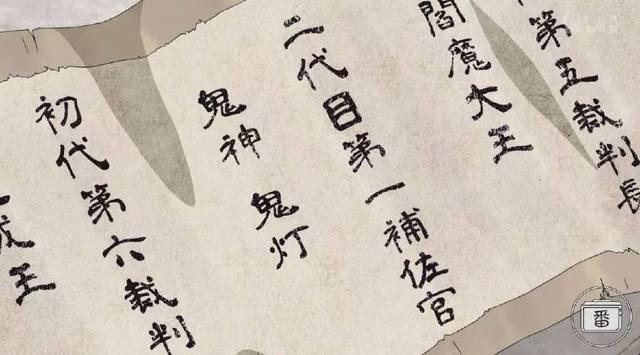 第五裁判長
閻魔大王
二代目第一補佐官
鬼神 鬼灯
初代第六裁判
成王
番